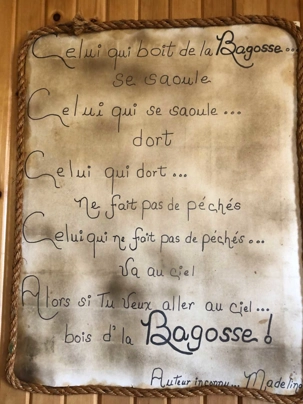 Celui qui boit de la Bagosse...
se saoule
Celui qui se saoule...
dort
Celui qui dort...
Ne fait pas de péchés
Celui qui ne fait pas de péchés...
Va au ciel
Alors si Tu veux aller au ciel...
bois d'la Bagosse!
Auteur inconnu... Madelin